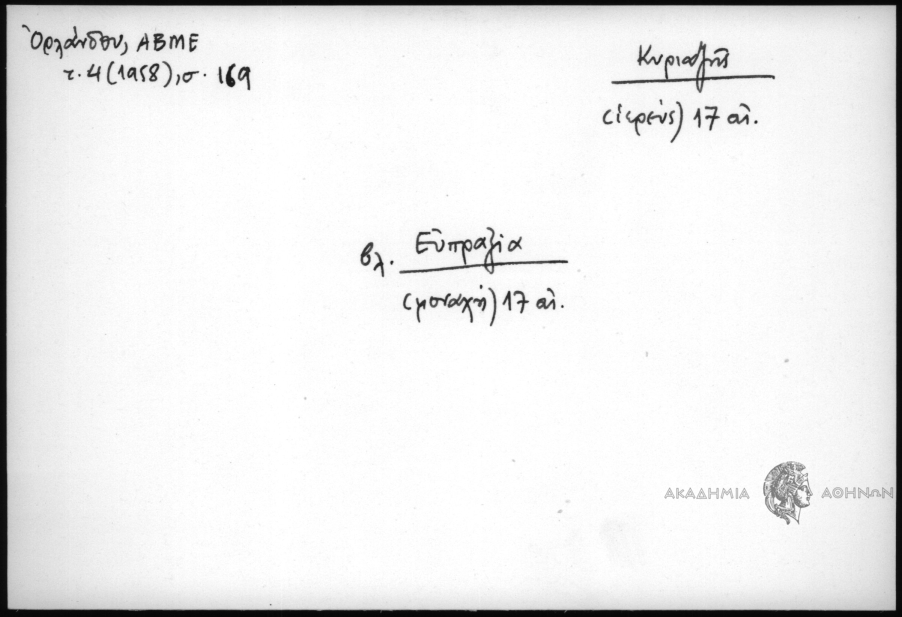 Ὀρλάνδου, ΑΒΜΕ
τ. 4 (1958), σ. 169
Κυριαζῆς
(ἱερεύς) 17 αἰ.
βλ. Εὐπραξία
(μοναχή) 17 αἰ.
ΑΚΑΔΗΜΙΑ ΑΘΗΝΩΝ